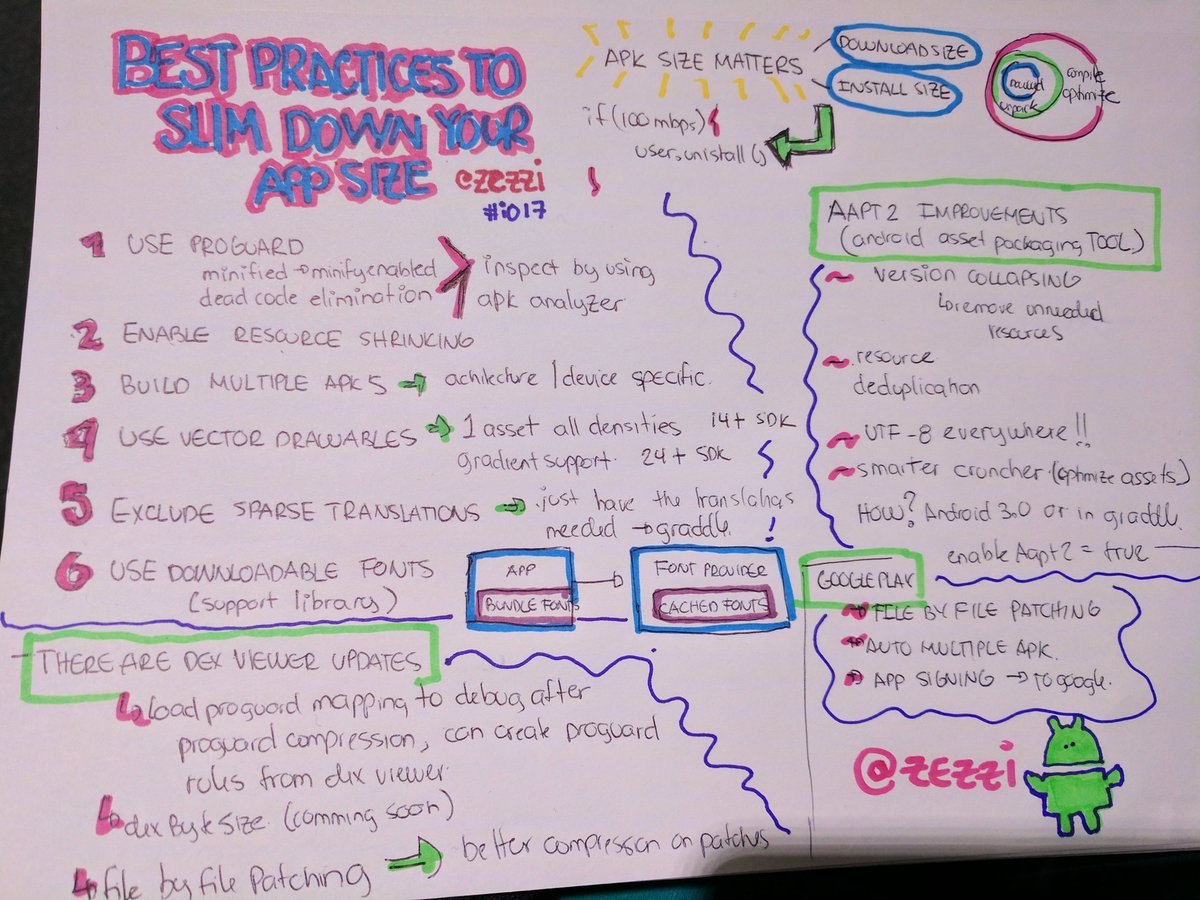 BEST PRACTICES TO
SLIM DOWN YOUR
APP SIZE @ZEZZI
#io17
APK SIZE MATTERS
DOWNLOAD SIZE
INSTALL SIZE
unpack
compile
optimize
if (100 mbps) {
user.unistall()
}
1 USE PROGUARD
minified → minifyenabled
dead code elimination
inspect by using
apk analyzer
2 ENABLE RESOURCE SHRINKING
3 BUILD MULTIPLE APK S → achitecture / device specific.
4 USE VECTOR DRAWABLES → 1 asset all densities 14+ SDK
gradient support. 24+ SDK
5 EXCLUDE SPARSE TRANSLATIONS → just have the translations
needed → graddle.
6 USE DOWNLOADABLE FONTS
(support library)
APP
BUNDLE FONTS
FONT PROVIDER
CACHED FONTS
AAPT 2 IMPROVEMENTS
(android asset packaging TOOL)
~ VERSION COLLAPSING
↳ remove unneeded
resources
~ resource
deduplication
~ UTF-8 everywhere!!
~ smarter cruncher (optmize assets)
How? Android 3.0 or in graddle.
enable Aapt 2 = true
GOOGLE PLAY
FILE BY FILE PATCHING
AUTO MULTIPLE APK.
APP SIGNING → TO google.
@ZEZZI
THERE ARE DEX VIEWER UPDATES
↳ load proguard mapping to debug after
proguard compression, can create proguard
rules from dex viewer.
↳ dex Byte size. (comming soon)
↳ file by file Patching → better compression on patches